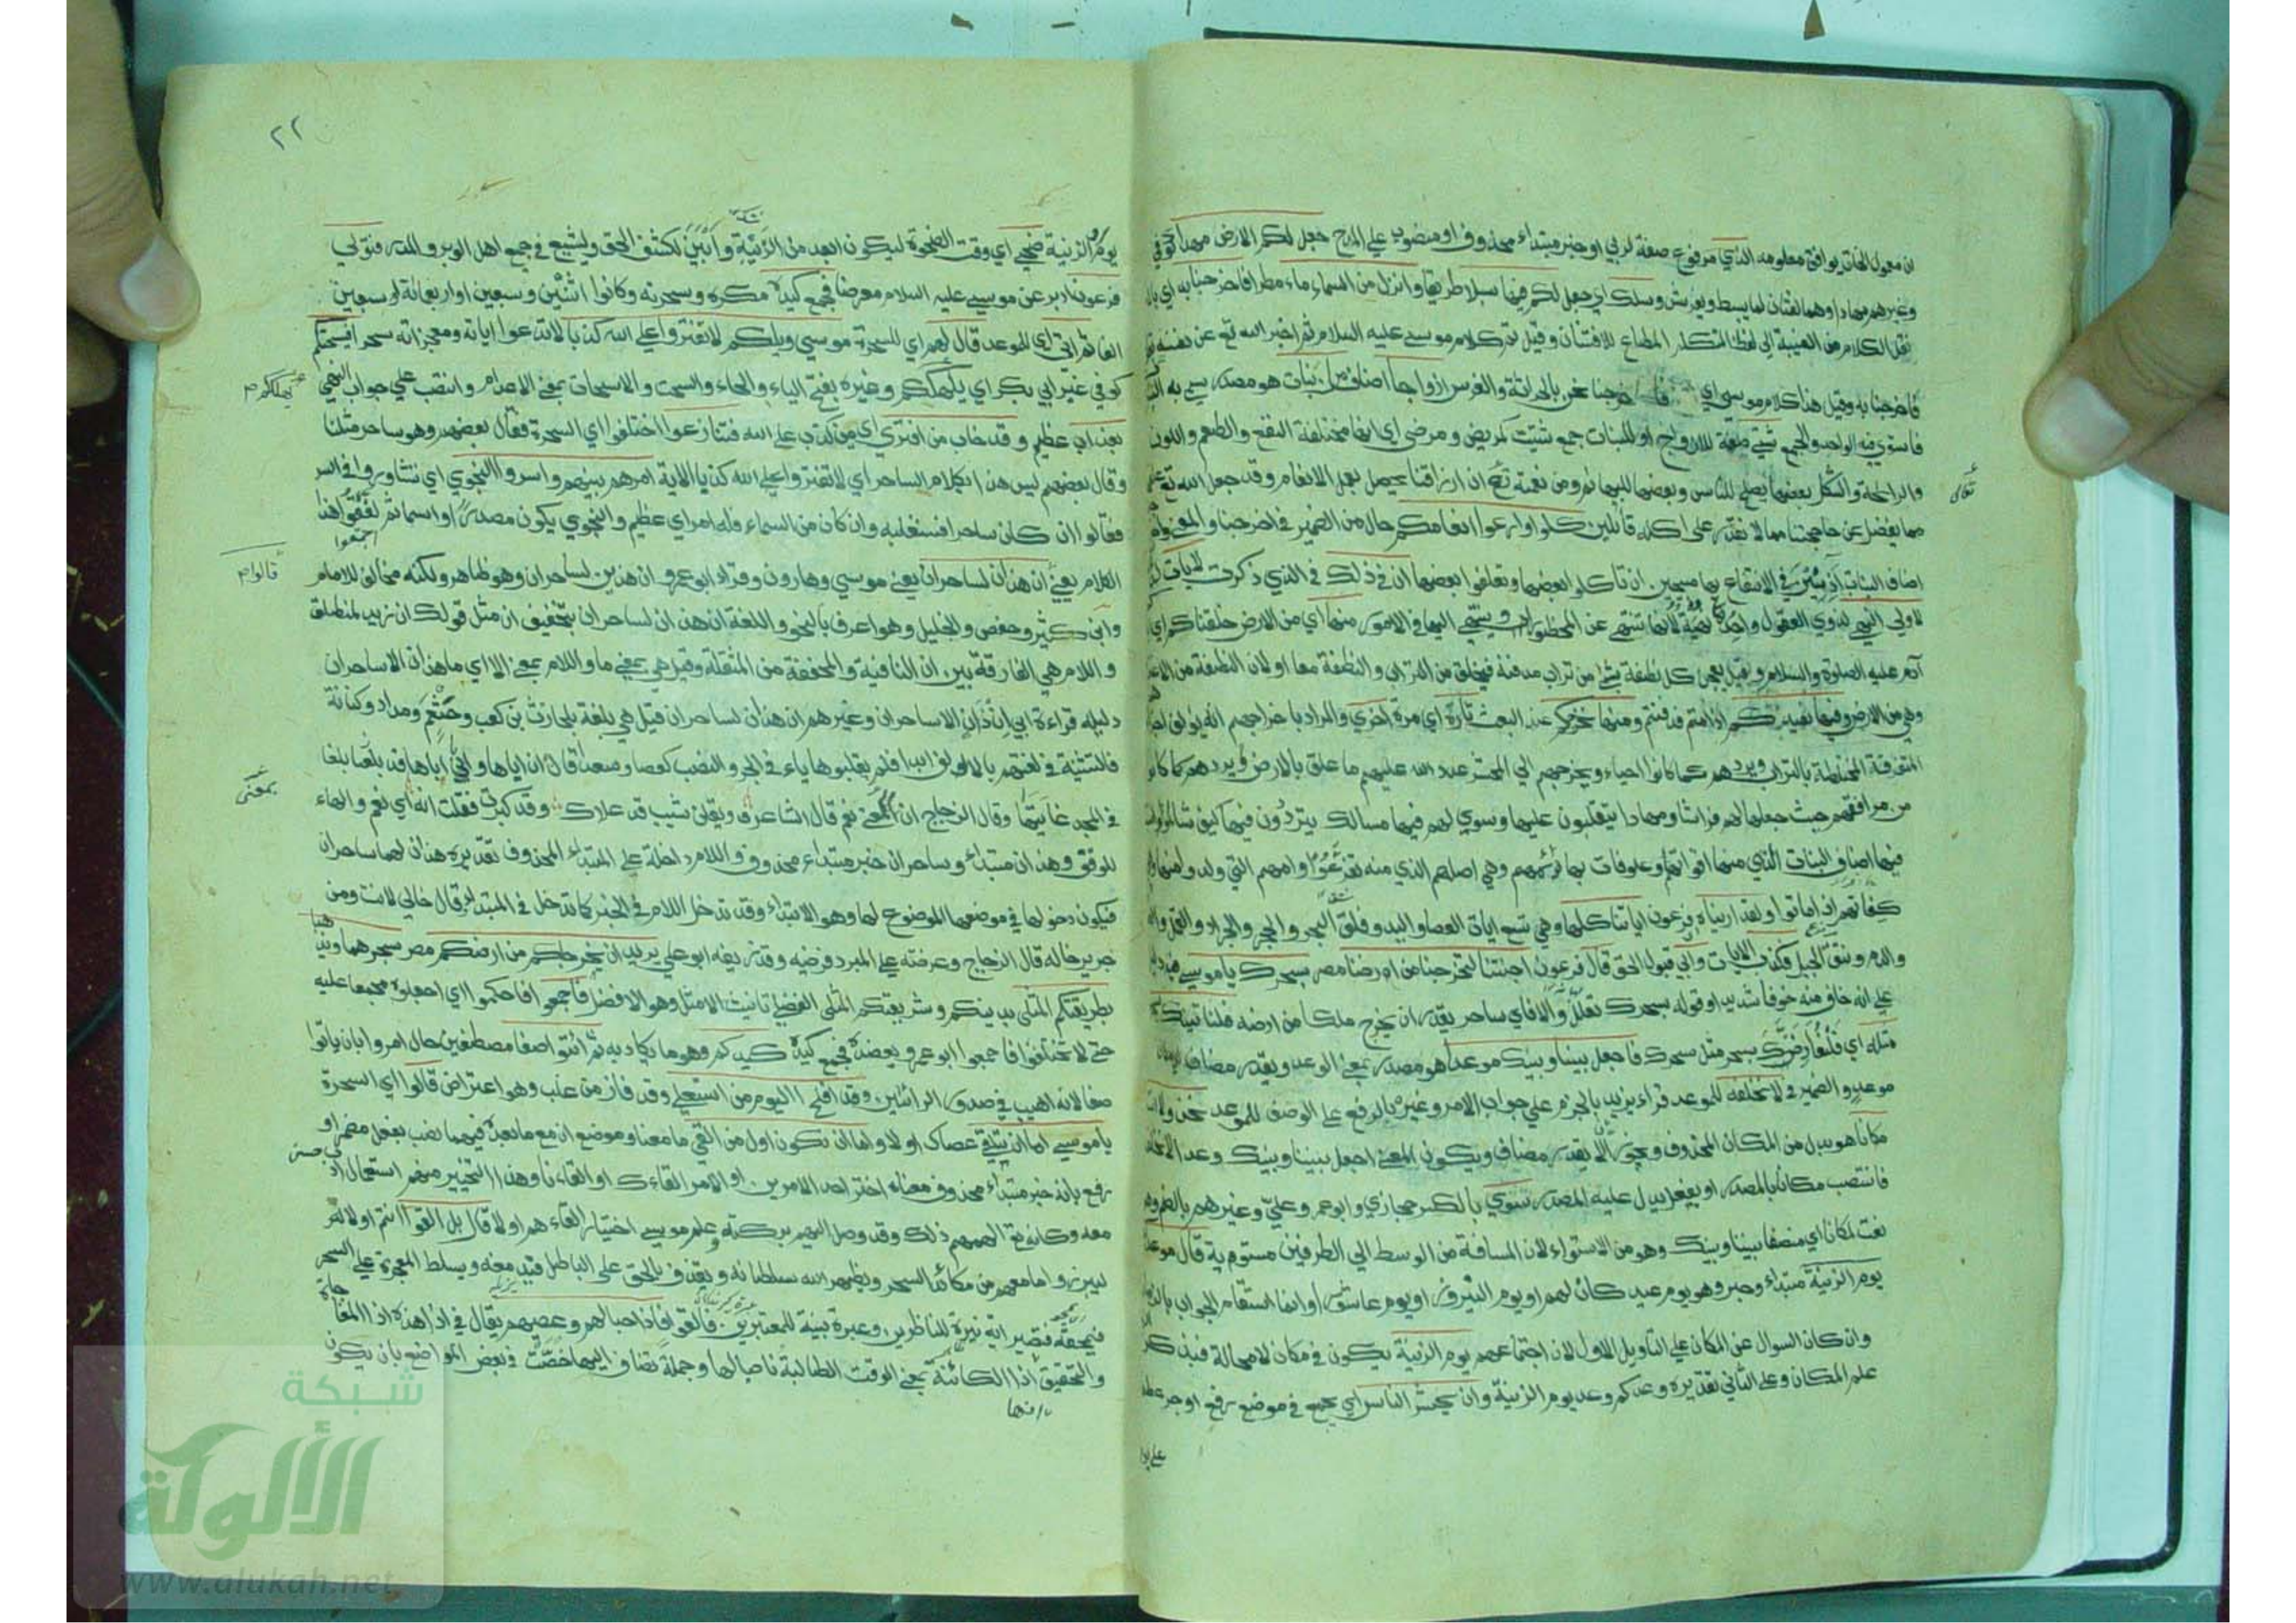 ان معمول الخات يوافق معلومه الذي مرفوع صفة لربي او خبر مبتداء محذوف او منصوب على المدح جعل لكم الارض مهدا كوفي
وغيرهم مهادا وهما لغتان لما يبسط ويفرش وسلك اي جعل لكم فيها سبلا طريقا وانزل من السماء ماء مطرا فاخرجنا به اي بالماء
نقل الكلام من الغيبة الى لفظ المتكلم المطاع للافتنان وقيل تم كلام موسي عليه السلام ثم اخبر الله تع عن نفسه
فاخرجنا به وقيل هذا كلام موسي اي فاخرجنا نحن بالحراثة والغرس ازواجا اصنافا من نبات هو مصدر سمي به
فاستوي فيه الواحد والجمع شتي صفة للازواج او للنبات جمع شتيت كمريض ومرضي اي انها مختلفة النفع والطعم واللون
والرائحة والشكل بعضها يصلح للناس وبعضها للبهائم ومن نعمة تع ان ارزاقنا يحصل بعمل الانعام وقد جعل الله تع
تعالى
مما يفضل عن حاجتنا مما لا نقدر على اكله قائلين كلوا وارعوا انعامكم حال من الضمير في اخرجنا والمعني
اصناف النبات آذنين في الانتفاع بها مبيحين ان تاكلوا بعضها وتعلفوا بعضها ان في ذلك في الذي ذكرت لايات
لاولي النهي لذوي العقول واحدها نهية لانها تنتهي عن المحظور او ينتهي اليها في الامور منها اي من الارض خلقناكم اي
آدم عليه الصلوة والسلام وقيل يعجن كل نطفة بشئ من تراب مدفنه فيخلق من التراب والنطفة معا او لان النطفة من الاغذية
وهي من الارض وفيها نعيدكم اذا متم فدفنتم ومنها نخرجكم عند البعث تارة اي مرة اخري والمراد باخراجهم انه يؤلف
المتفرقة المختلطة بالتراب ويردهم كما كانوا احياء ويخرجهم الي المحشر عدد الله عليهم ما علق بالارض
من مرافقهم حيث جعلها لهم فراشا ومهادا يتقلبون عليها وسوي لهم فيها مسالك يترددون فيها كيف شاؤا
فيها اصناف النبات التي منها اقواتهم وعلوفات بهائمهم وهي اصلهم الذي منه تفرعوا وامهم التي ولدوا منها
كفاتهم اذا ماتوا ولقد اريناه فرعون اياتنا كلها وهي تسع ايات العصا واليد وفلق البحر والحجر والجراد والقمل
والدم ونتق الجبل فكذب الايات وابي قبول الحق قال فرعون اجئتنا لتخرجنا من ارضنا مصر بسحرك يا موسي فيه دليل
علي انه خاف منه خوفا شديدا وقوله بسحرك تعلل والا فاي ساحر يقدر ان يخرج ملكا من ارضه فلناتينك
مثله اي فلنعارضنك بسحر مثل سحرك فاجعل بيننا وبينك موعدا هو مصدر بمعني الوعد ويقدر مضاف
موعد والضمير في لا نخلفه للموعد قراء يزيد بالجزم علي جواب الامر وغيره بالرفع على الوصف للموعد نحن ولا انت
مكانا هو بدل من المكان المحذوف ويجوز الا يقدر مضاف ويكون المعني اجعل بيننا وبينك وعدا لا نخلفه
فانتصب مكانا بالمصدر او بفعل يدل عليه المصدر سوي بالكسر حجازي وابو عمرو وعلي وغيرهم بالضم
نعت لمكانا اي منصفا بيننا وبينك وهو من الاستواء لان المسافة من الوسط الي الطرفين مستوية قال موعدكم
يوم الزينة مبتداء وخبر وهو يوم عيد كان لهم او يوم النيروز او يوم عاشورا وانما استقام الجواب
وان كان السوال عن المكان علي التاويل الاول لان اجتماعهم يوم الزينة يكون في مكان لا محالة فبذكر
علم المكان وعلى الثاني تقديره وعدكم وعد يوم الزينة وان يحشر الناس اي يجمع في موضع رفع او جر
٢٢
يوم الزينة ضحي اي وقت الضحوة ليكون ابعد من الريبة وابين لكشف الحق وليشيع في جمع اهل الوبر والمدر فتولي
فرعون ادبر عن موسي عليه السلام معرضا فجمع كيده مكره وسحرته وكانوا اثنين وسبعين او اربعائة او سبعين
الفا ثم اتي اي للموعد قال لهم اي للسحرة موسي ويلكم لا تفتروا علي الله كذبا لا تدعوا اياته ومعجزاته سحرا فيسحتكم
كوفي غير ابي بكر اي يهلككم وغيره بفتح الياء والحاء والسحت والاسحات بمعني الاعدام وانتصب علي جواب النهي
يهلككم
بعذاب عظيم وقد خاب من افتري اي من كذب على الله فتنازعوا اختلفوا اي السحرة فقال بعضهم هو ساحر مثلنا
وقال بعضهم ليس هذا بكلام الساحر اي لا تفتروا علي الله كذبا الاية امرهم بينهم واسروا النجوي اي تشاوروا في السر
فقالوا ان كان ساحرا فسنغلبه وان كان من السماء فله امر اي عظيم والنجوي يكون مصدرا واسما ثم لفقوا هذا
قالوا
الكلام يعني ان هذان لساحران يعني موسي وهارون وقراء ابو عمرو ان هذين لساحران وهو ظاهر ولكنه مخالف للامام
وابن كثير وحفص والخليل وهو اعرف بالنحو واللغة ان هذان لساحران بتخفيف ان مثل قولك ان زيد لمنطلق
واللام هي الفارقة بين ان النافية والمخففة من المثقلة وقيل هي بمعني ما واللام بمعني الا اي ما هذان الا ساحران
دليله قراءة ابي ان ذان الا ساحران وغيرهم ان هذان لساحران قيل هي بلغة بلحارث بن كعب وخثعم ومراد وكنانة
فالتثنية في لغتهم بالالف ابدا فلم يقلبوها ياء في الجر والنصب كعصا وسعدا قال ان اباها وابا اباها قد بلغا
بمعنى
في المجد غايتها وقال الزجاج ان بمعني نعم قال الشاعر ويقلن شيب قد علاك وقد كبرت فقلت انه اي نعم والهاء
للوقف وهذان مبتداء وساحران خبر مبتداء محذوف واللام داخلة على المبتداء المحذوف تقديره هذان لهما ساحران
فيكون دخولها في موضعها الموضوع لها وهو الابتداء وقد تدخل اللام في الخبر كما تدخل في المبتداء قال خالي لانت ومن
جرير خاله قال الزجاج وعرضته علي المبرد فرضيه وقد زيفه ابو علي يريدان ان يخرجاكم من ارضكم مصر بسحرهما ويذهبا
بطريقتكم المثلى بدينكم وشريعتكم المثلى الفضلي تانيث الامثل وهو الافضل فاجمعوا فاحكموا اي اجعلوه مجمعا عليه
حتي لا تختلفوا فاجمعوا ابو عمرو ويعضده فجمع كيده كيدكم وهو ما يكاد به ثم ائتوا صفا مصطفين حال امروا بان ياتوا
صفا لانه اهيب في صدور الرائين وقد افلح اليوم من استعلي وقد فاز من غلب وهو اعتراض قالوا اي السحرة
يا موسي اما ان تلقي عصاك اولا واما ان نكون اول من القي ما معنا وموضع ان مع ما بعده فيهما نصب بفعل مضمر او
رفع بانه خبر مبتداء محذوف معناه اختر احد الامرين او الامر القاءك او القاءنا وهذا التخيير منهم استعمال ادب حسن
معه وكانه تع الهمهم ذلك وقد وصل اليهم بركته وعلم موسي اختيار القاءهم اولا قال بل القوا انتم اولا
ليبرزوا ما معهم من مكائد السحر ويظهر الله سلطانه ويقذف بالحق على الباطل فيدمغه ويسلط المعجزة علي السحر
فتمحقه فتصير اية نيرة للناظرين وعبرة بينة للمعتبرين فالقوا فاذا حبالهم وعصيهم يقال في اذا هذه اذا المفاجاة
والتحقيق انها اذا الكائنة بمعني الوقت الطالبة ناصبا لها وجملة تضاف اليها خصت في بعض المواضع بان يكون
شبكة
الألوكة
www.alukah.net